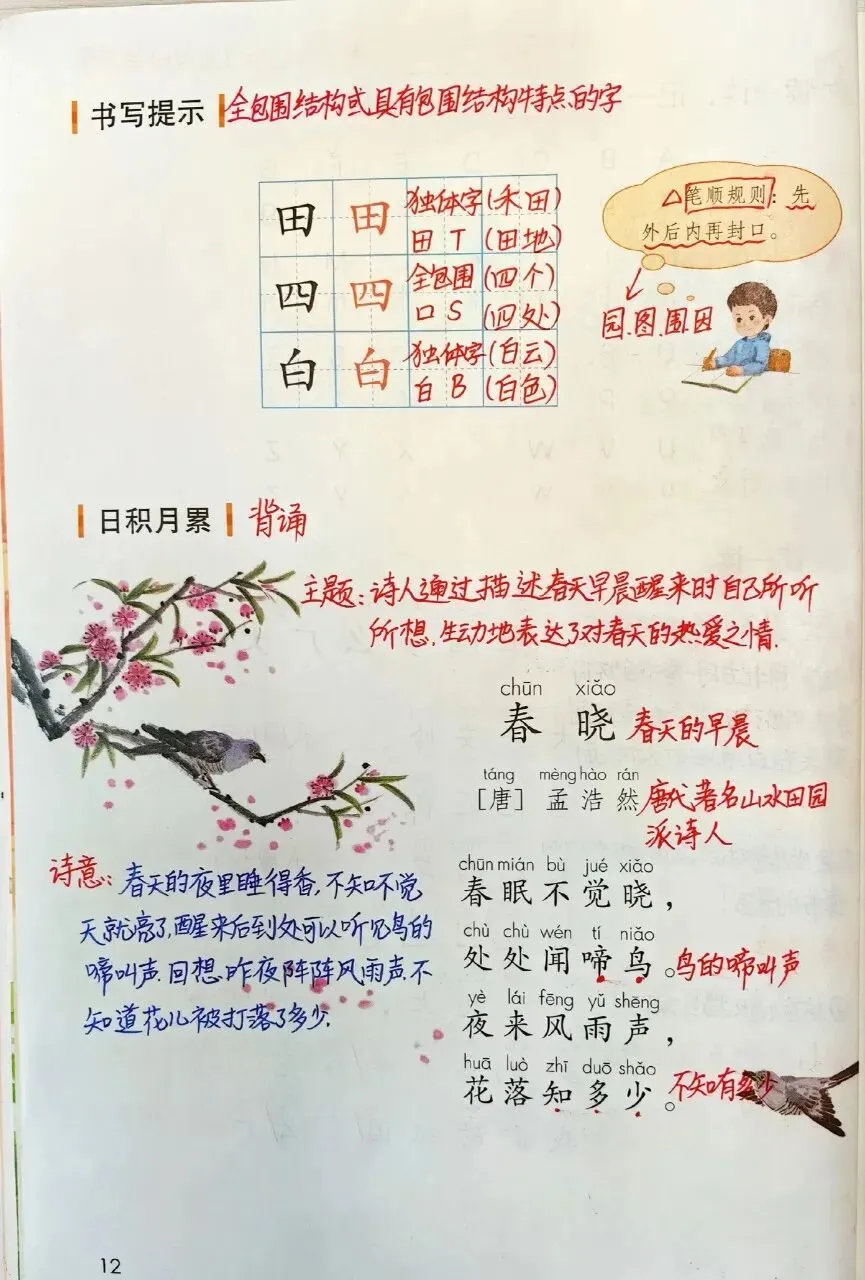 书写提示 全包围结构或具有包围结构特点的字
田 田 独体字(禾田)
田 T (田地)
四 四 全包围(四个)
口 S (四处)
白 白 独体字(白云)
白 B (白色)
△笔顺规则：先
外后内再封口。
园.图.围.因
日积月累 背诵
主题:诗人通过描述春天早晨醒来时自己所听
所想,生动地表达了对春天的热爱之情.
chūn xiǎo
春晓 春天的早晨
táng mèng hào rán
[唐] 孟浩然 唐代著名山水田园
派诗人
chūn mián bù jué xiǎo
春眠不觉晓，
chù chù wén tí niǎo
处处闻啼鸟。鸟的啼叫声
yè lái fēng yǔ shēng
夜来风雨声，
huā luò zhī duō shǎo
花落知多少。不知有多少
诗意:春天的夜里睡得香,不知不觉
天就亮了,醒来后到处可以听见鸟的
啼叫声.回想昨夜阵阵风雨声.不
知道花儿被打落了多少.
12